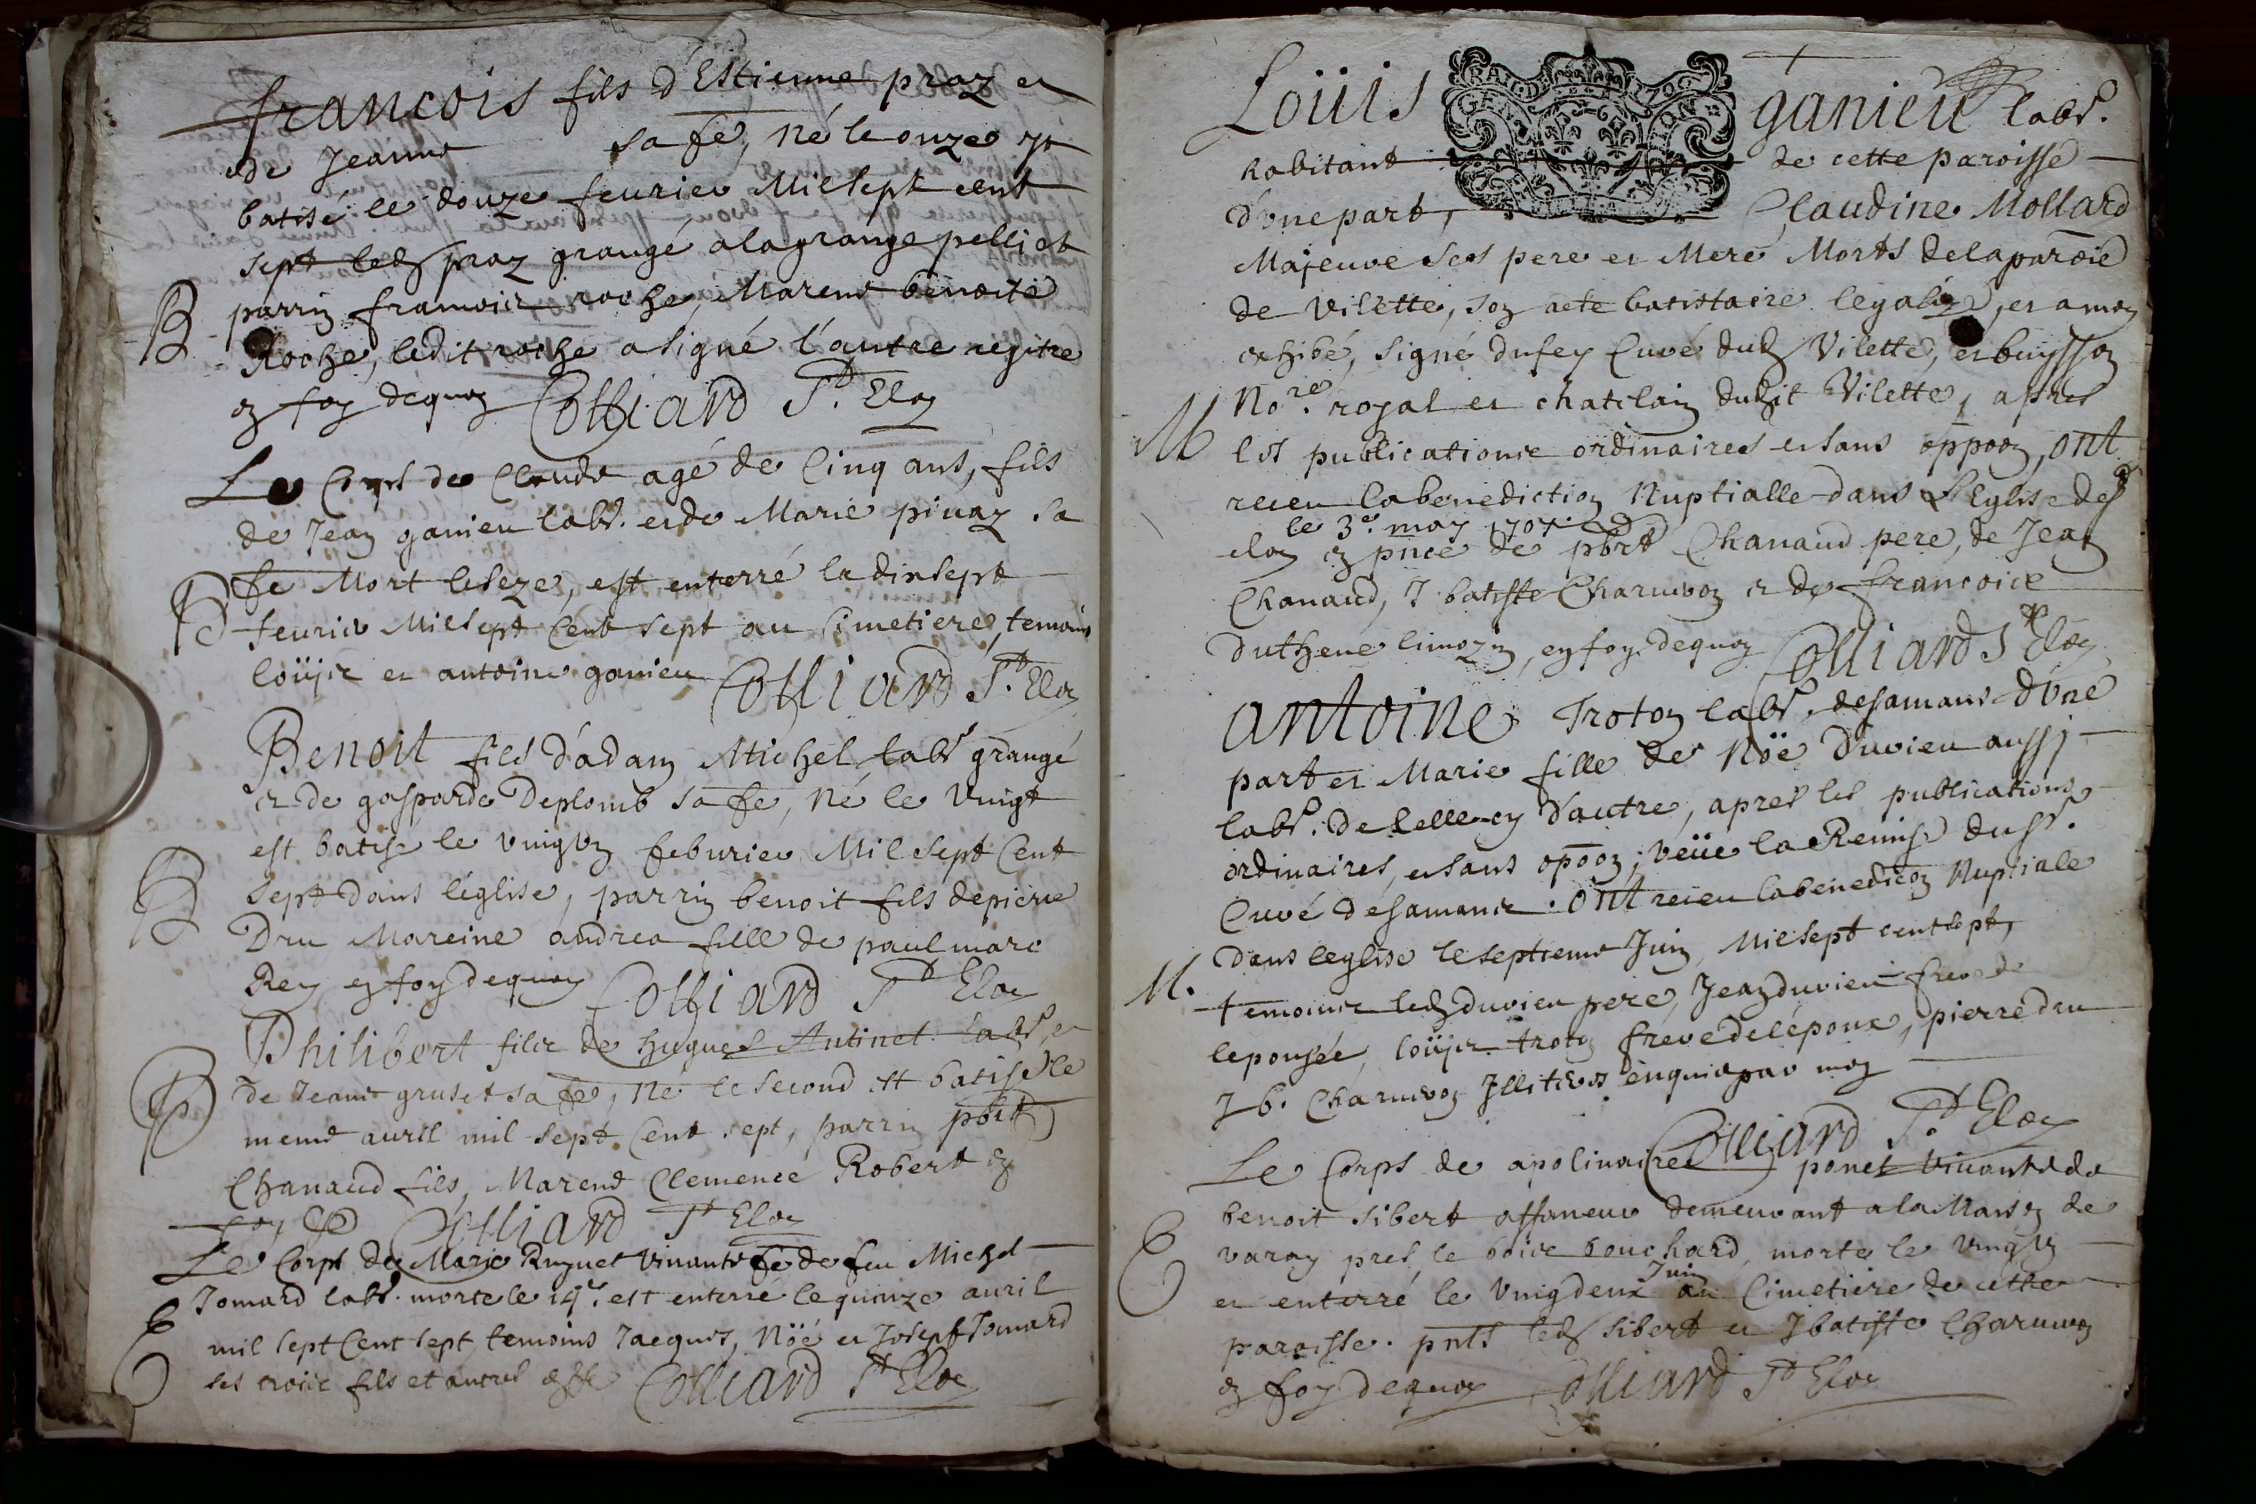 françois fils d'Estienne praz et
de Jeanne sa fe, Né le onze et
batisé le douze feurier Mil sept cent
sept led praz grangé a la grange pelliet
B parrin françois roche, Marene benoite
Roche, ledit roche a signé l'autre regitre
en foy dequoy Colliard St. Eloy
Le Corps de Claude agé de Cinq ans, fils
de Jean ganieu labr. et de Marie piuaz sa
fe Mort le seze, est enterré le dix sept
feurier Mil sept Cent sept au Cimetiere, temoins
loüis et antoine ganieu Colliard St. Eloy
Benoit fils d'adam Michel labr grangé
et de gasparde Deplomb sa fe, Né le Vingt
est batisé le vingt un feburier Mil sept Cent
B sept dans l'église, parrin benoit fils de pierre
Dru Mareine andrea fille de paul marc
Rey en foy dequoy Colliard St Eloy
Philibert fils de hugues Antinet labr, et
B de Jeane gruset sa fe, Né le second est batisé le
meme auril mil sept Cent sept, parrin pbrt
Chanaud fils, Marene Clemence Robert en
foy Colliard St Eloy
Le Corps de Marie Ruynet Viuante fe de feu Michel
Jomard labr. morte le 14e. est enterré le quinze auril
E mil sept Cent sept temoins Jacques, Nöé et Joseph Jomard
ses trois fils et autres Colliard St Eloy
Loüis ganieu labr.
habitant de cette paroisse
d'une part, Claudine Mollard
Majeure ses pere et Mere Morts de la paroie
de Vilette, son acte batistaire legalisé, et a moy
exhibé, signé dufey Curé dud Vilette, et buysson
Nore. royal et chatelain dudit Vilette, apres
M les publications ordinaires et sans oppoon, ont
receu la benediction Nuptialle dans L'Eglise de St
le 3e. may 1707.
eloy en pnce de pbrt Chanaud pere, de Jean
Chanaud, J batiste Charuvon et de françoise
duthene limozin, en foy dequoy Colliard St Eloy
antoine Troton labr. de samans d'une
part et Marie fille de Nöe Duvieu aussy
labr. de celle cy d'autre, apres les publications
ordinaires, et sans opoon, veüe la Remise du Sr.
Curé de samans. ont receu la benedicon Nuptiale
dans leglise le septieme Juin, Mil sept cent sept,
M. temoins led duvieu pere, Jean duvieu frere de
l'epousée, loüis troton frere de l'époux, pierre dru
J b. Charuvon Illiteres enquis par moy
Colliard St. Eloy
Le Corps de apolinaire ponet Viuante de
benoit sibert affaneur demeurant a la Maison de
E varay pres le bois bouchard, morte le vingt un
Juin
et enterré le vingt deux au Cimetiere de cette
paroisse. pnts led sibert et J batiste Charuvon
en foy dequoy Colliard St Eloy